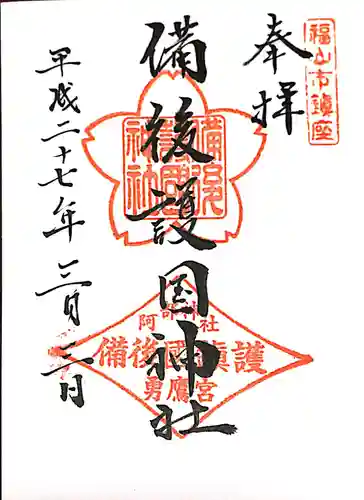 福山市鎮座
奉拝
備後護国神社
備後護國神社
阿部神社
備後國鎮護
勇鷹宮
平成二十七年三月二日